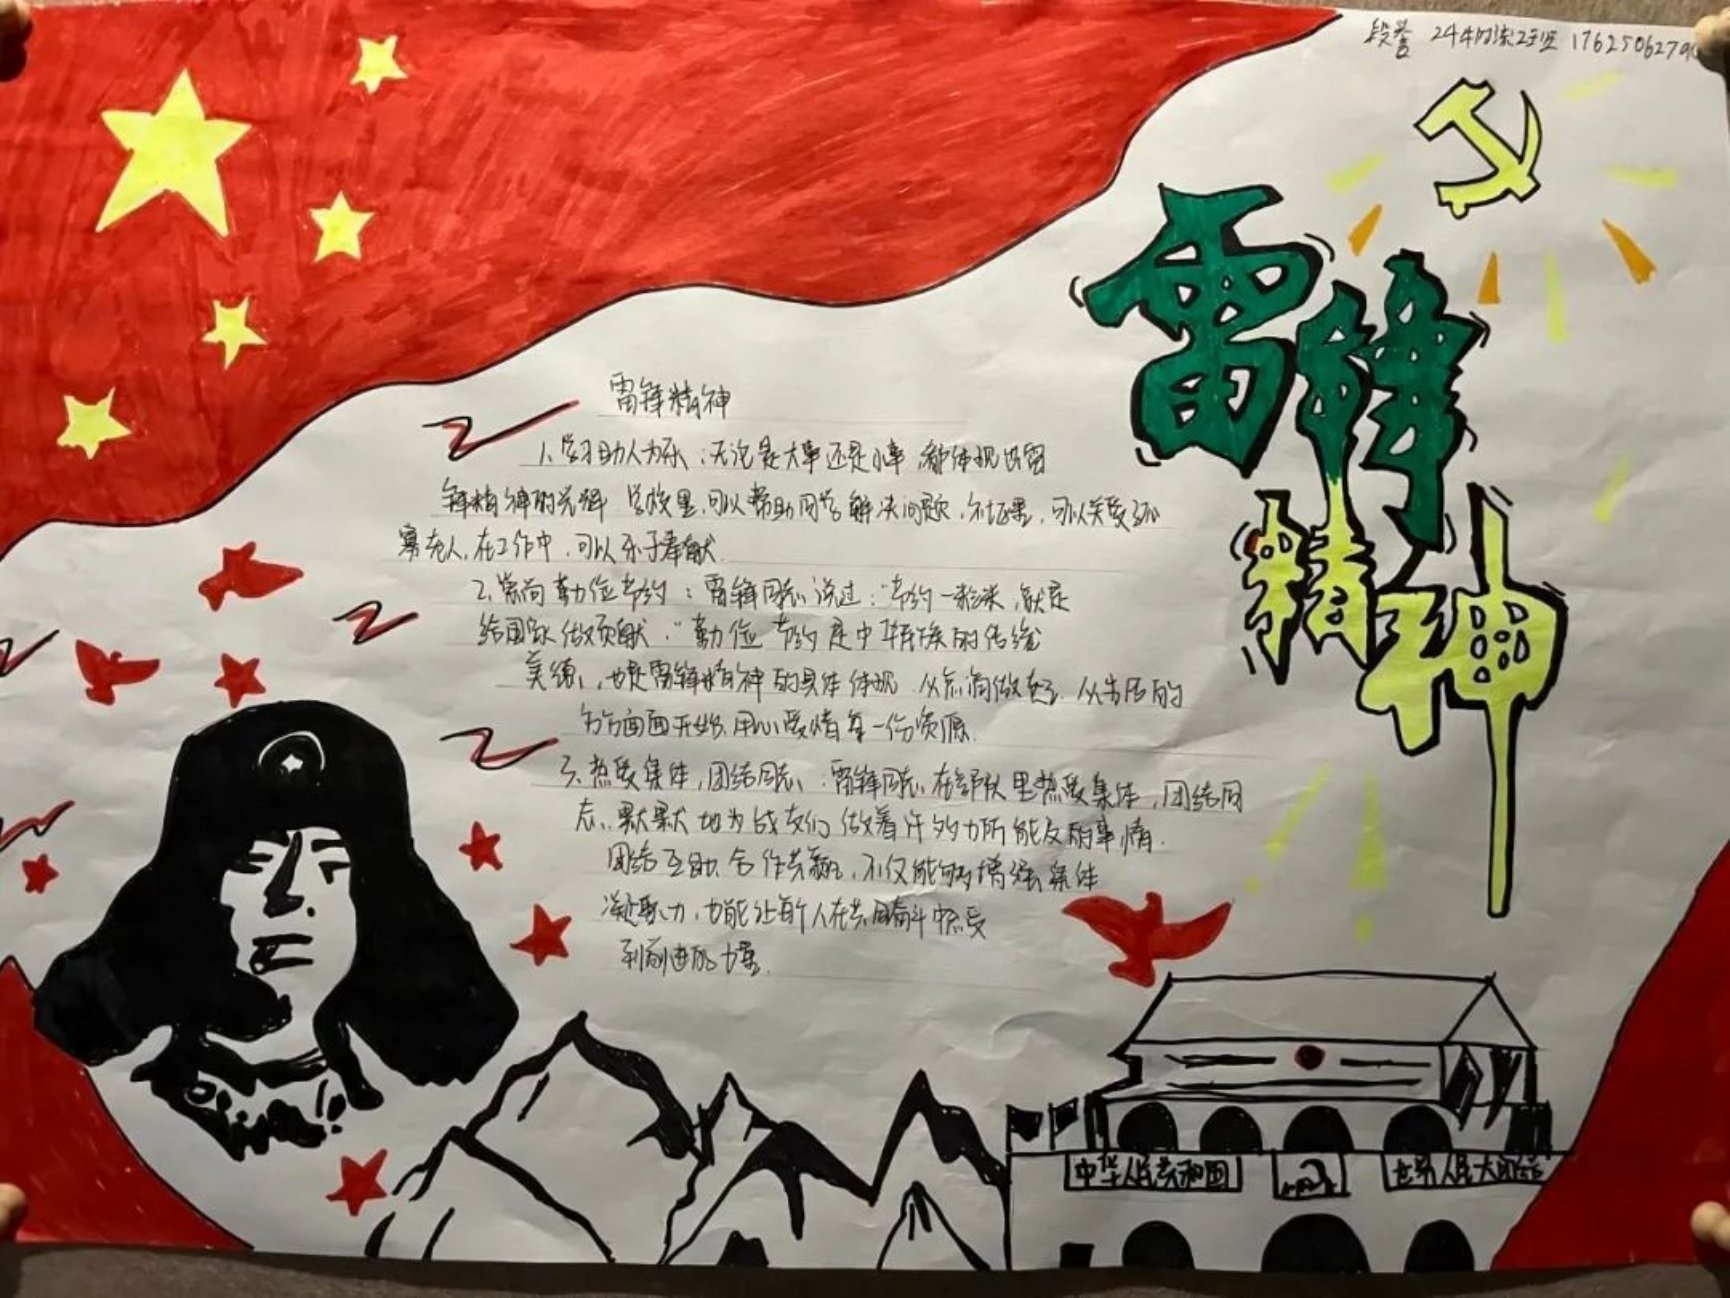 段誉 24 2班 1762506279
雷锋
精神
雷锋精神
1、学习助人为乐：无论是大事还是小事，都体现出雷
锋精神的光辉 学校里，可以帮助同学解决问题，在社里，可以关爱孤
寡老人，在工作中，可以乐于奉献.
2、崇尚勤俭节约：雷锋同志说过："节约一粒米，就是
给国家做贡献."勤俭节约是中华民族的传统
美德，也是雷锋精神的具体体现 从点滴做起，从生活的
方方面面开始，用心爱惜每一份资源.
3、热爱集体，团结同志：雷锋同志在部队里热爱集体，团结同
志，默默地为战友们做着许多力所能及的事情.
团结互助、合作共赢，不仅能够增强集体
凝聚力，也能让每个人在共同奋斗中感受
到前进的力量.
中华人民共和国
世界人民大团结